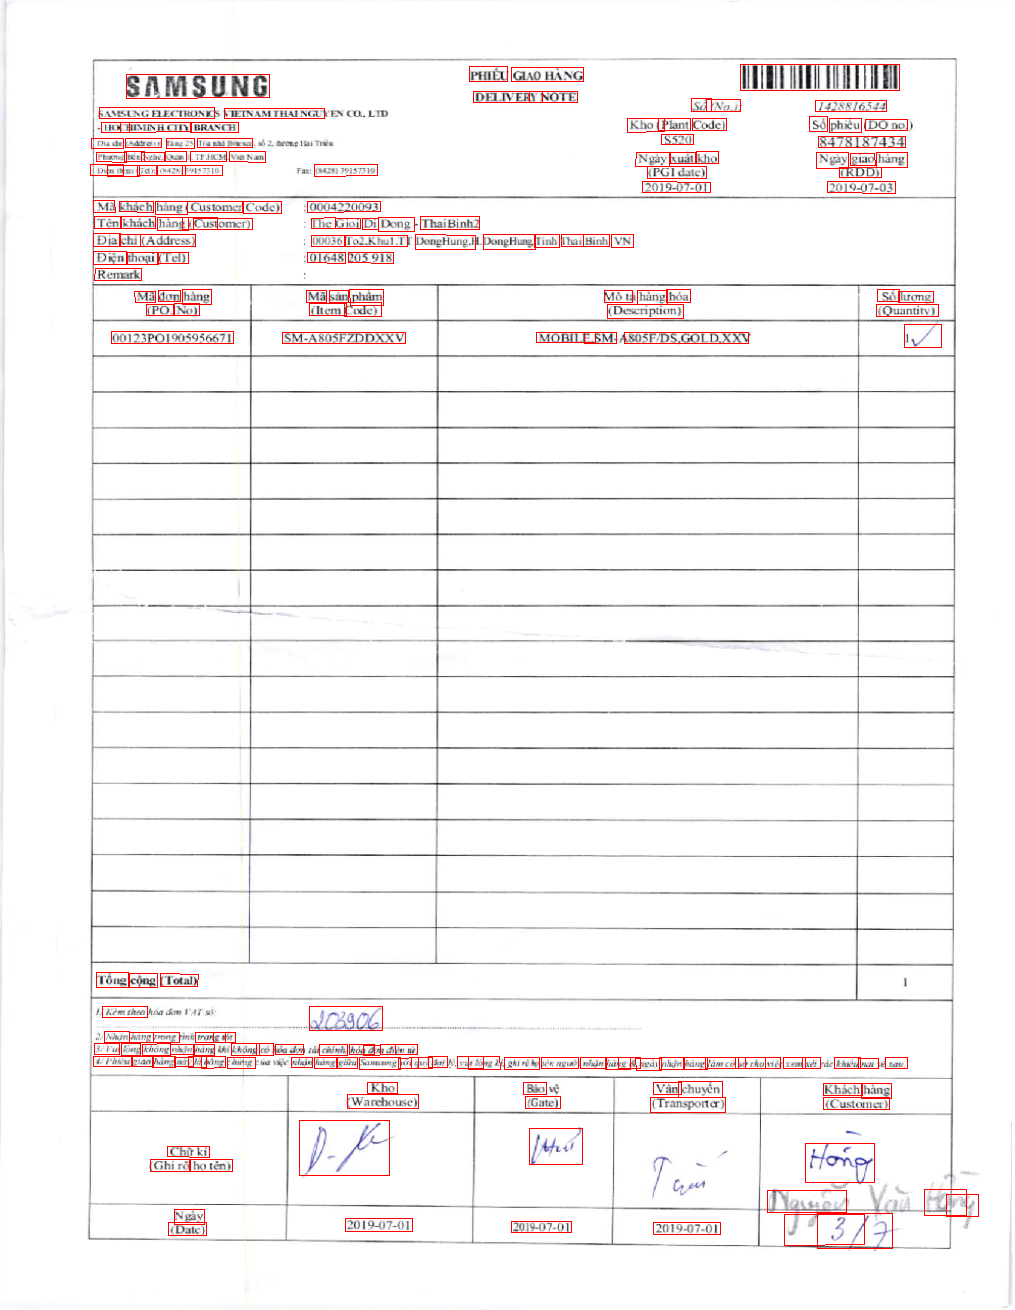 SAMSUNG
PHIẾU GIAO HÀNG
DELIVERY NOTE
SAMSUNG ELECTRONICS VIETNAM THAI NGUYEN CO., LTD
- HOCHIMINH CITY BRANCH
Địa chỉ (Address): Tầng 25, Tòa nhà Bitexco, số 2, đường Hải Triều
Phường Bến Nghé, Quận 1, TP.HCM, Việt Nam
Điện thoại (Tel): (8428) 39157310 Fax: (8428) 39157310
Số (No.) 1428816544
Kho (Plant Code) Số phiếu (DO no.)
S520 8478187434
Ngày xuất kho Ngày giao hàng
(PGI date) (RDD)
2019-07-01 2019-07-03
Mã khách hàng (Customer Code) : 0004220093
Tên khách hàng (Customer) : The Gioi Di Dong - ThaiBinh2
Địa chỉ (Address) : 00036 To2,Khu1,TT DongHung,H.DongHung,Tinh Thai Binh, VN
Điện thoại (Tel) : 01648 205 918
Remark :
Mã đơn hàng Mã sản phẩm Mô tả hàng hóa Số lượng
(PO. No) (Item Code) (Description) (Quantity)
00123PO1905956671 SM-A805FZDDXXV MOBILE,SM-A805F/DS,GOLD,XXV 1
Tổng cộng (Total) 1
1. Kèm theo hóa đơn VAT số:
203906
2/ Nhận hàng trong tình trạng tốt
3/ Vui lòng không nhận hàng khi không có hóa đơn tài chính/ hóa đơn điện tử.
4/ Phiếu giao hàng này là bằng chứng của việc nhận hàng giữa Samsung với quý đại lý, vui lòng ký, ghi rõ họ tên người nhận hàng & ngày nhận hàng làm cơ sở cho việc xem xét các khiếu nại về sau.
Kho Bảo vệ Vận chuyển Khách hàng
(Warehouse) (Gate) (Transporter) (Customer)
Chữ kí
(Ghi rõ họ tên)
Hồng
Nguyễn Văn Hồng
Ngày
(Date) 2019-07-01 2019-07-01 2019-07-01 3/7